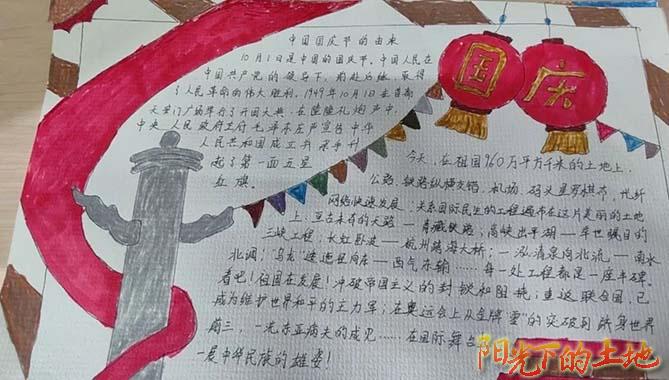 中国国庆节的由来
10月1日是中国的国庆节。中国人民在
中国共产党的领导下,前赴后继,取得
了人民革命的伟大胜利。1949年10月1日在首都
天安门广场举行了开国大典,在隆隆礼炮声中,
中央人民政府主席毛泽东庄严宣告中华
人民共和国成立并亲手升
起了第一面五星
红旗。
国庆
今天,在祖国960万平方千米的土地上,
公路、铁路纵横交错,机场、码头星罗棋布,
网络快速发展,关系国际民生的工程遍布在这片美丽的土地
上:亘古未有的天路——青藏铁路;高峡出平湖——举世瞩目的
三峡工程;长虹卧波——杭州跨海大桥;一泓清泉向北流——南水
北调;“乌龙”进海——西气东输……每一处工程都是一座丰碑。
看吧!祖国在发展!冲破帝国主义的封锁和阻挠;重返联合国,已
成为维护世界和平的主力军;在奥运会上从金牌“零”的突破到跻身世界
前三,一洗东亚病夫的成见……在国际舞台
一展中华民族的雄姿!
阳光下的土地